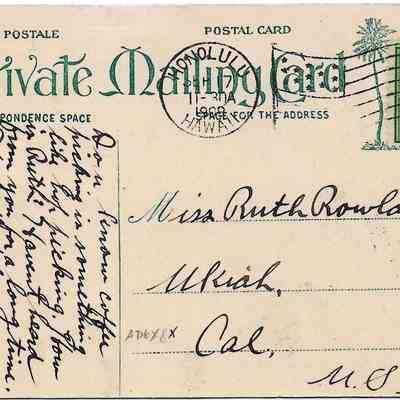 POSTALE
POSTAL CARD
rivate Mailing Card
PONDENCE SPACE
SPACE FOR THE ADDRESS
HONOLULU
17
11-30A
HAWAII
Did u know coffee
picking is something
like hop picking. How
is Ruth? Haven't heard
from you for a long time.
Miss Ruth Rowla
Ukiah,
Cal,
U.S